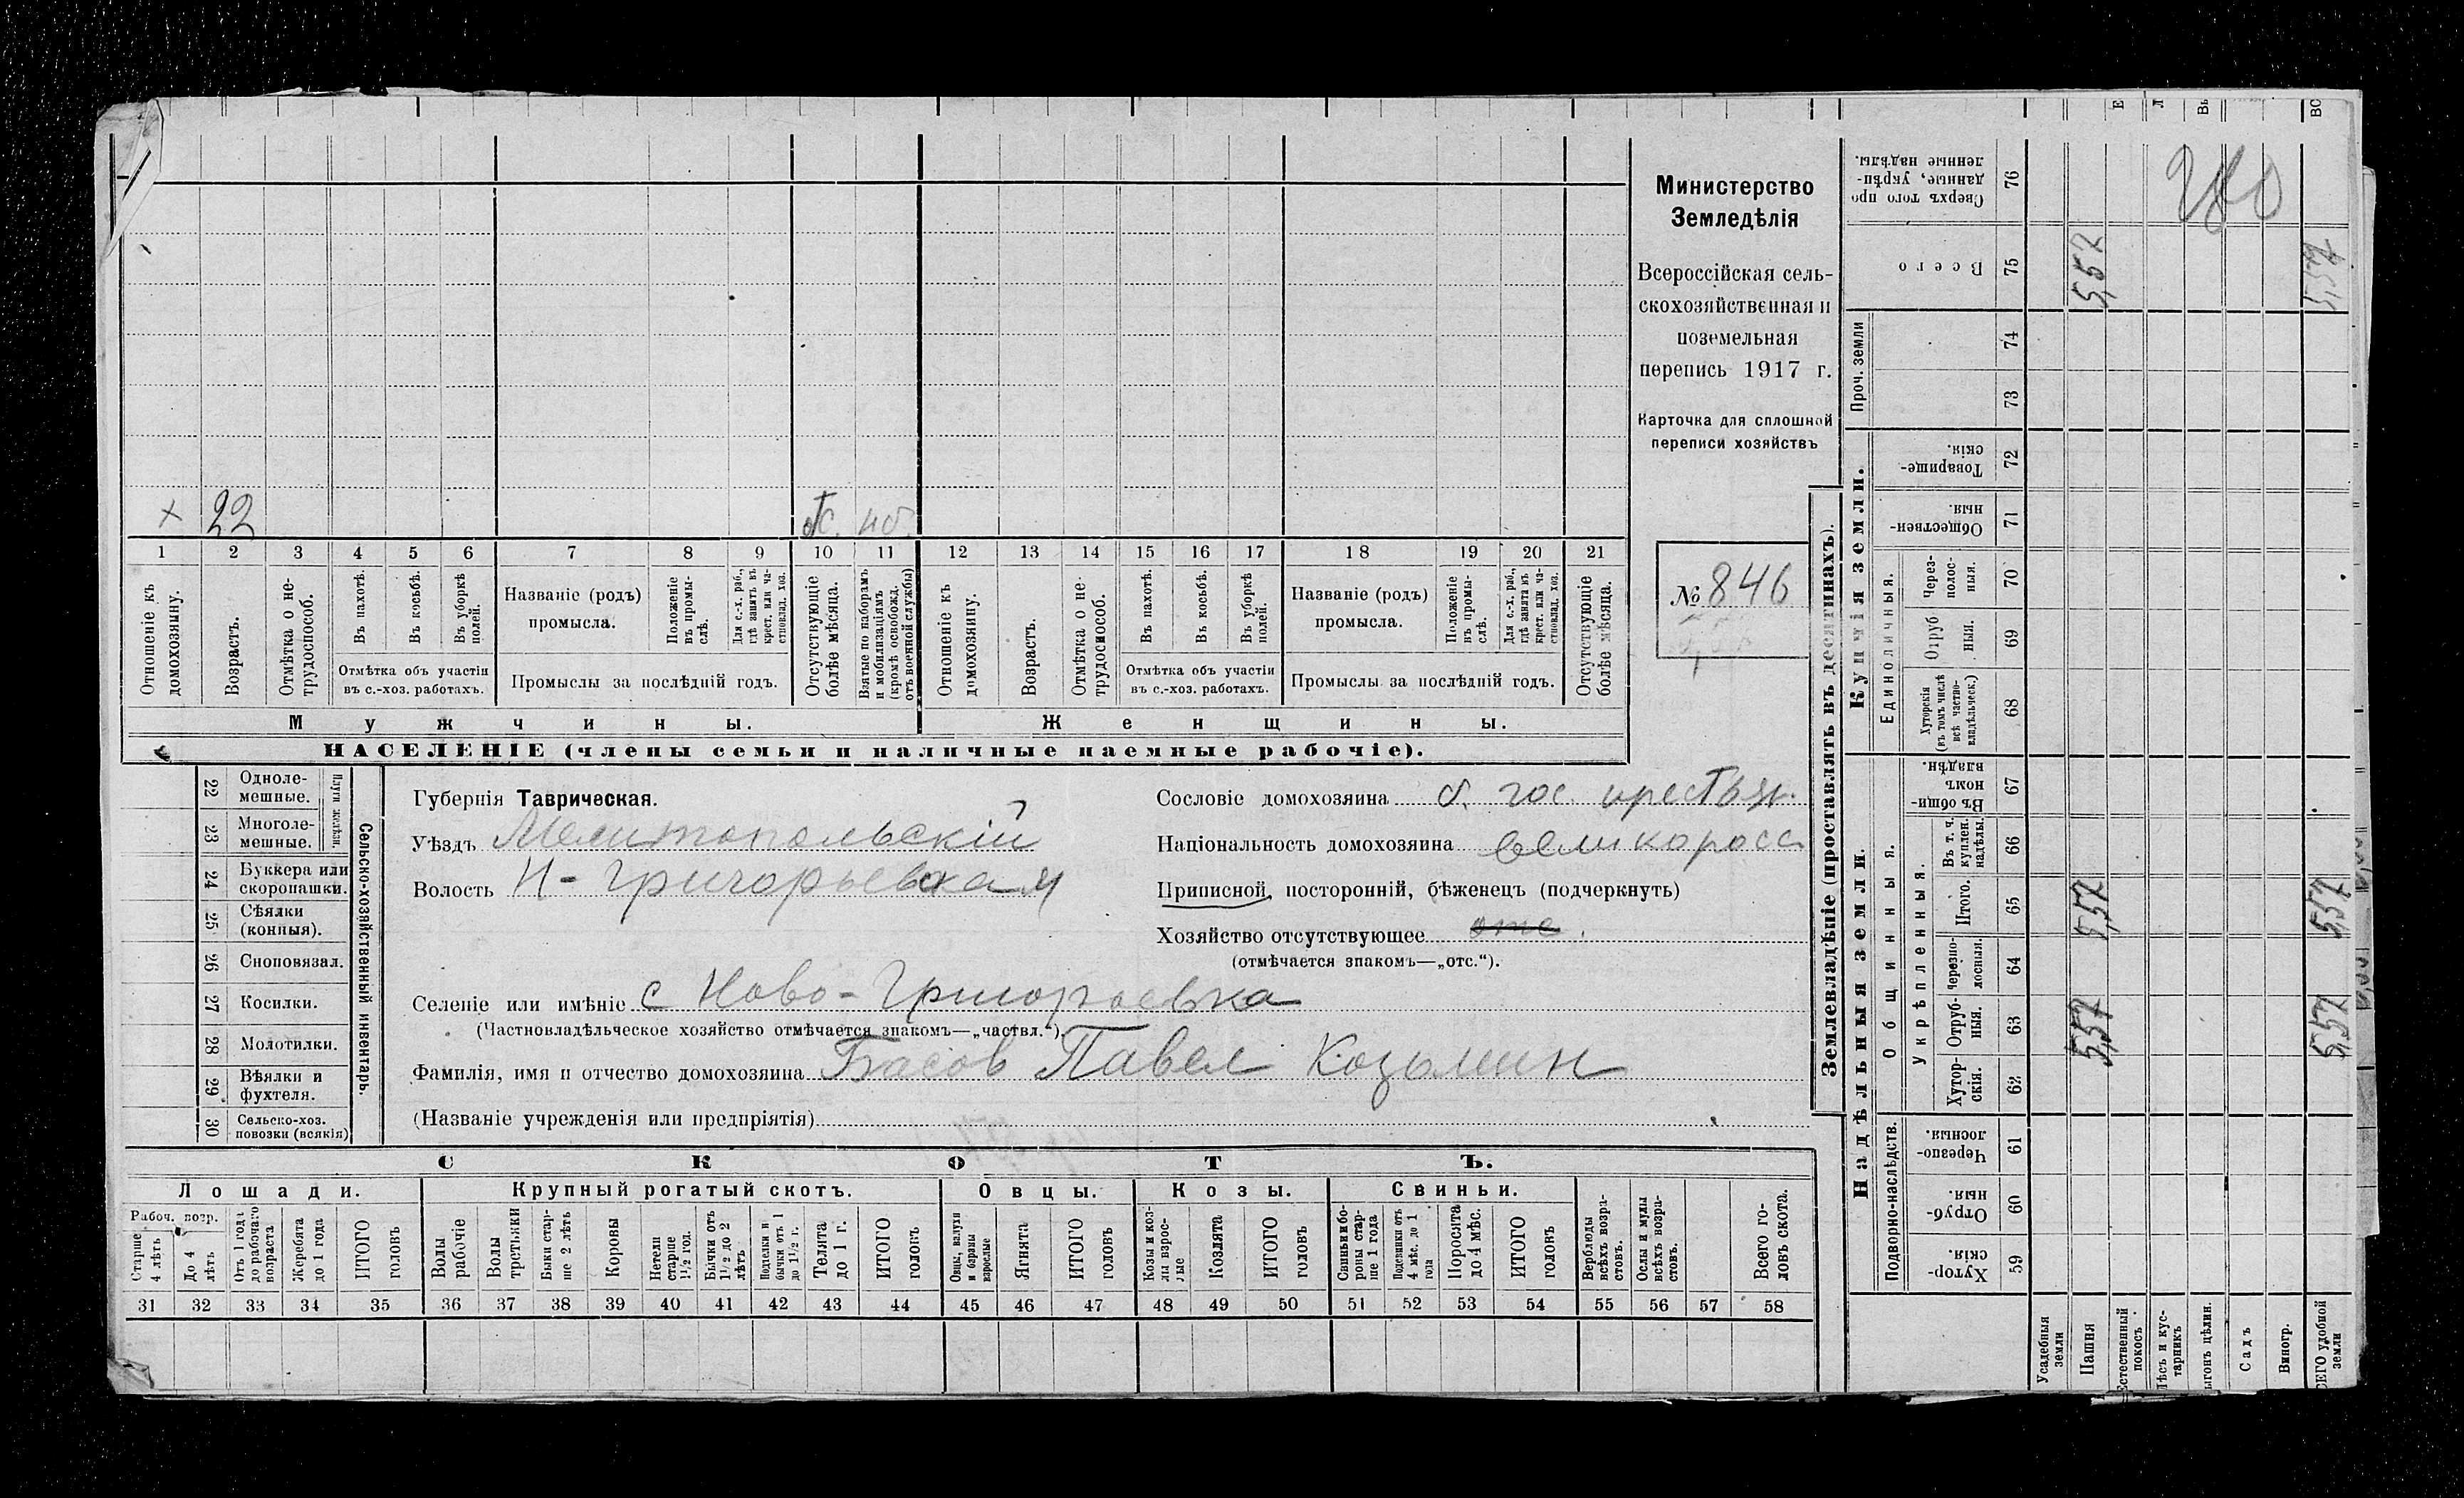 × 22 отс. наб.
1 2 3 4 5 6 7 8 9 10 11 12 13 14 15 16 17 18 19 20 21
Отношеніе къ домохозяину.
Возрастъ.
Отмѣтка о не-трудоспособ.
Въ пахотѣ.
Въ косьбѣ.
Въ уборкѣ полей.
Отмѣтка объ участіи
въ с.-хоз. работахъ.
Названіе (родъ)
промысла.
Положеніе въ промы-слѣ.
Для с.-х. раб., гдѣ занятъ въ крест. или ча-стновлад. хоз.
Промыслы за послѣдній годъ.
Отсутствующіе болѣе мѣсяца.
Взятые по наборамъ и мобилизаціямъ (кромѣ освобожд. отъ военной службы)
Отношеніе къ домохозяину.
Возрастъ.
Отмѣтка о не-трудоспособ.
Въ пахотѣ.
Въ косьбѣ.
Въ уборкѣ полей.
Отмѣтка объ участіи
въ с.-хоз. работахъ.
Названіе (родъ)
промысла.
Положеніе въ промы-слѣ.
Для с.-х. раб., гдѣ занята въ крест. или ча-стновлад. хоз.
Промыслы за послѣдній годъ.
Отсутствующіе болѣе мѣсяца.
Мужчины.
Женщины.
НАСЕЛЕНІЕ (члены семьи и наличные наемные рабочіе).
Министерство
Земледѣлія
Всероссійская сель-
скохозяйственная и
поземельная
перепись 1917 г.
Карточка для сплошной
переписи хозяйствъ
№ 846
22 Одноле-мешные.
23 Многоле-мешные.
Плуги желѣзн.
24 Буккера или скоропашки.
25 Сѣялки (конныя).
26 Сноповязал.
27 Косилки.
28 Молотилки.
29 Вѣялки и фухтеля.
30 Сельско-хоз. повозки (всякія)
Сельско-хозяйственный инвентарь.
Губернія Таврическая.
Уѣздъ Мелитопольскій
Волость Н-Григорьевская
Сословіе домохозяина б. гос. крестьян.
Національность домохозяина великоросс
Приписной, посторонній, бѣженецъ (подчеркнуть)
Хозяйство отсутствующее отс.
(отмѣчается знакомъ—„отс.“).
Селеніе или имѣніе с Ново-Григорьевка
(Частновладѣльческое хозяйство отмѣчается знакомъ—„частвл.“).
Фамилія, имя и отчество домохозяина Басов Павел Козьмин
(Названіе учрежденія или предпріятія)
СКОТЪ.
Лошади. Крупный рогатый скотъ. Овцы. Козы. Свиньи.
Рабоч. возр.
Старше 4 лѣтъ
До 4 лѣтъ
Отъ 1 года до рабочаго возраста
Жеребята до 1 года
ИТОГО головъ
Волы рабочіе
Волы третьяки
Быки стар-ше 2 лѣтъ
Коровы
Нетели старше 1½ год.
Бычки отъ 1½ до 2 лѣтъ
Подтелки и бычки отъ 1 до 1½ г.
Телята до 1 г.
ИТОГО головъ
Овцы, валухи и бараны взрослые
Ягнята
ИТОГО головъ
Козы и коз-лы взрос-лые
Козлята
ИТОГО головъ
Свиньи и бо-ровы стар-ше 1 года
Подсвинки отъ 4 мѣс. до 1 года
Поросята до 4 мѣс.
ИТОГО головъ
Верблюды всѣхъ возра-стовъ.
Ослы и мулы всѣхъ возра-стовъ.
Всего го-ловъ скота.
31 32 33 34 35 36 37 38 39 40 41 42 43 44 45 46 47 48 49 50 51 52 53 54 55 56 57 58
Землевладѣніе (проставлять въ десятинахъ).
Купчія земли.
Надѣльныя земли.
Сверхъ того про-данные, укрѣп-ленные надѣлы. 76
280
Всего 75 5,57 5,57
Проч. земли 74 73
Товарище-скія. 72
Обществен-ныя. 71
Единоличныя.
Через-полос-ныя. 70
Отруб-ныя. 69
Хуторскія (въ томъ числѣ всѣ частно-владѣльческ.) 68
Общинныя.
Въ общин-номъ владѣн. 67
Укрѣпленныя.
Въ т. ч. куплен. надѣлы. 66
Итого. 65 5,57 5,57
Черезпо-лосныя. 64
Отруб-ныя. 63 5,57 5,57
Хутор-скія. 62
Подворно-наслѣдств.
Черезпо-лосныя. 61
Отруб-ныя. 60
Хутор-скія. 59
Усадебныя земли
Пашня
Естественный покосъ
Лѣсъ и кус-тарникъ
ыгонъ цѣлин.
Садъ
Виногр.
СЕГО удобной земли